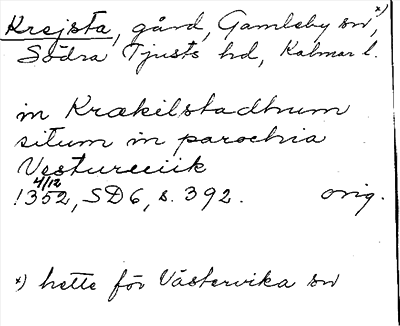 Krejsta, gård, Gamleby sn*),
Södra Tjusts hd, Kalmar l.
in Krækilstadhum
situm in parochia
Vestureciik
4/12
1352, SD6, s. 392. orig.
*) hette för Västervika sn